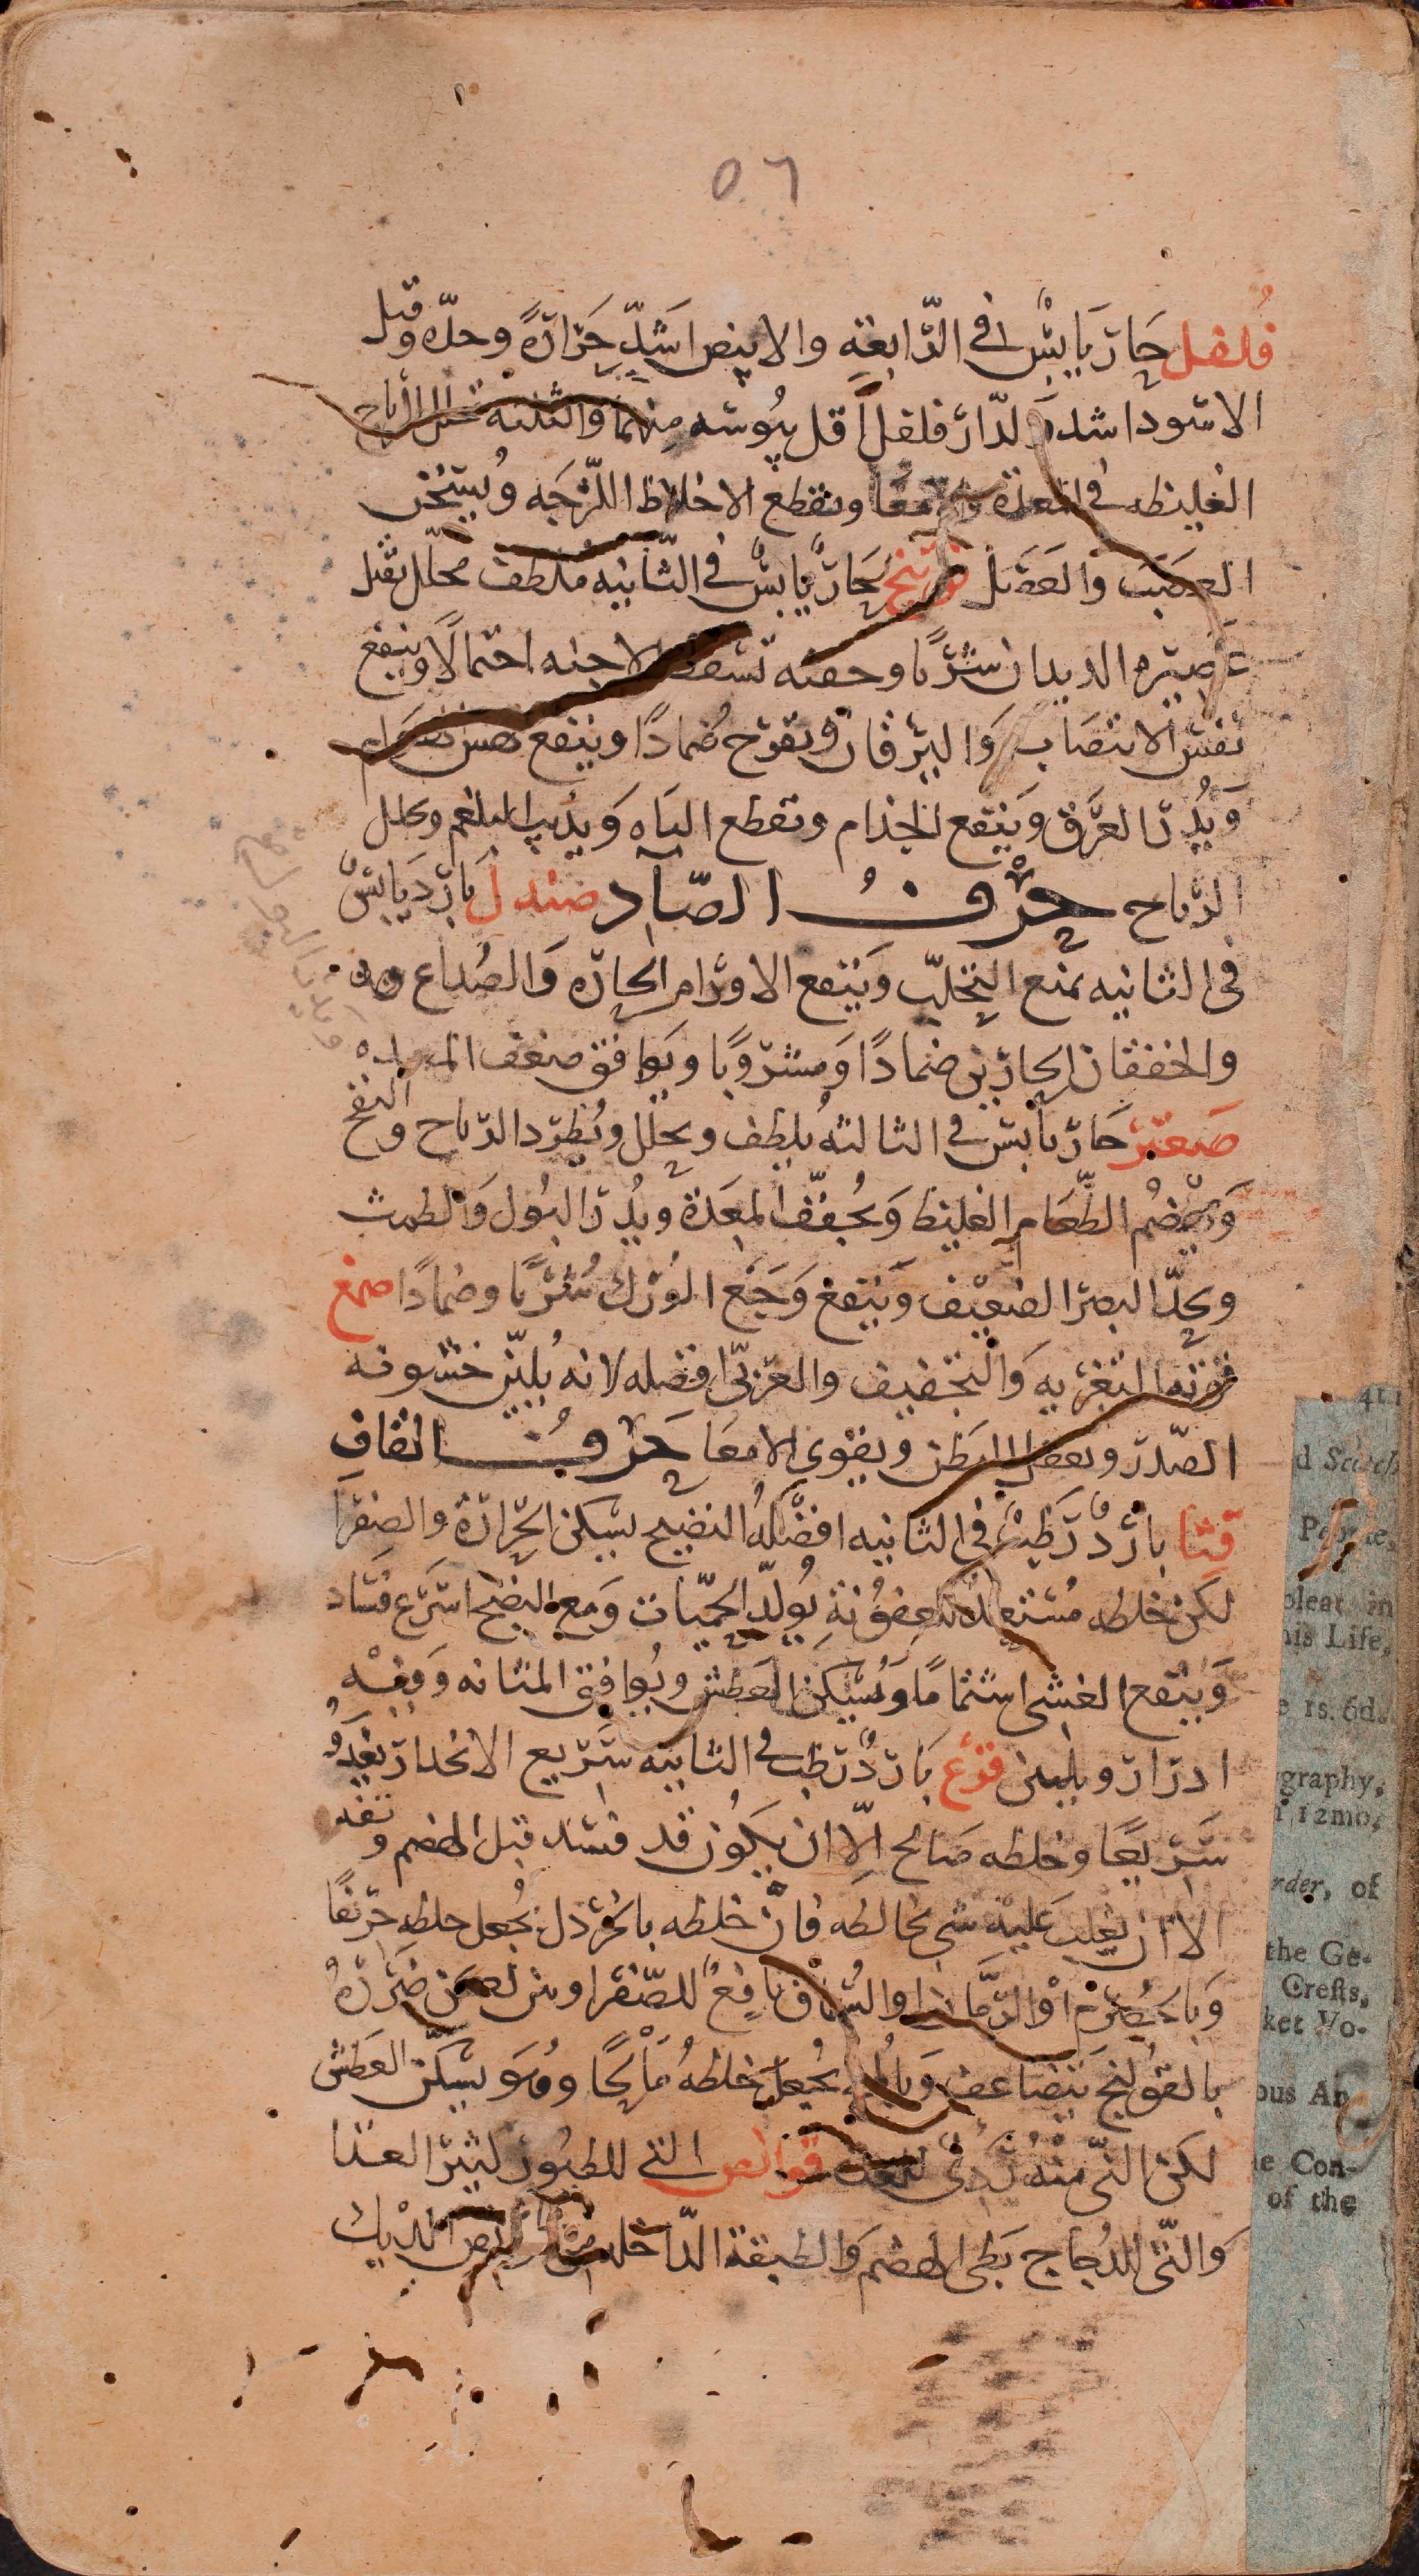 ٥٦
فلفل حَارّ يَابِسٌ في الرّابعَةِ والابيض اشَدّ حَرَارَةً وحدّه وقيل
الاسود اشد والدّار فلفل أقل يبُوسَه مِنهمَا والثلثه تحلل الرياح
الغليظه في المعدة والامعَا وتقطع الاخلاط اللّزجَه ويُسَخّن
العصَبَ والعَضَل فوتنج حَارّ يابسٌ في الثّانيه مُلطف محلّل يقتل
عَصِيرهِ الديدان شُرْبًا وحقنَه تسقط الاجنه احتمالًا وينفع
نفسَ الانتصَاب وَاليرقان ويقرّح ضُمادًا وينفع
وَيُدِرّ العَرَق وَينفع الجذام ويقطع البَاه وَيذيب البلغم ويحلل
الرّياح حَرْفُ الصّاد صندل بَارِد يَابسٌ
في الثانيه يمنع التحلّب وَينفع الاورَام الحارّه وَالصُداع
والخفقان الحارّين ضمادًا وَمشرُوبًا ويَوافق ضعف المعده
صَعتَر حَارّ يابسٌ في الثالثهُ يلطف ويحلّل ويُطرد الرياح والنفخ
وَيهضُم الطّعَام الغليظ وَيُجفّف المِعَدَة ويُدِرّ البُول وَالطمث
ويحدّ البصَر الضعيْف وَينفع وَجَع الوَرْك شُرْبًا وضمادًا صمغ
قوته التغريه وَالتجفيف والعَربىّ افضله لانه يُليّن خشونه
الصّدر ويعقل البَطن ويقوى الامعَا حَرفُ القافِ
قثا باردٌ رَطبٌ في الثانيه افضَلُهُ النضيج يسَكن الحَرارَة والصفرَا
لكن خلطه مُستعِد للعفُونَةِ يُولّد الحميّات وَمع النضج اسرَع فسَاد
وَينفع الغشى اشتمامًا وَيُسَكن العَطش ويُوافق المثانه وَفِيْهِ
ادرَار وتليين قرع بَاردٌ رَطب في الثانيه سَريع الانحدار يَغْدُو
سَريعًا وخلطه صَالح الّا ان يكُون قد فسَد قبل الهضم و تفه
الا ان يَغلب عَليْه شى يخالطه فانّ خلطه بالخردل يُجعل خلطه حرّيفًا
وَبالحُصْرُم اوْ الرّمّان او السُّمّاق نافِعٌ للصّفرَا وَمن ضَرَرَهُ
بالقوُلنج يتضاعف وَبالملح يُجعل خلطهُ مَالحًا وهُوَ يسَكّن العَطش
لكن النّى منهُ رَدِىٌ للمعده قوانص التى للطيُور كثير الغذا
وَالتى للدُجاج بَطى الهضم وَالطبقة الدّاخله من قوانص الدّيك
d Scotch
oleat in
his Life,
e 1s. 6d.
graphy,
12mo,
rder, of
the Ge-
Crests,
ket Vo-
ous An
e Con-
of the